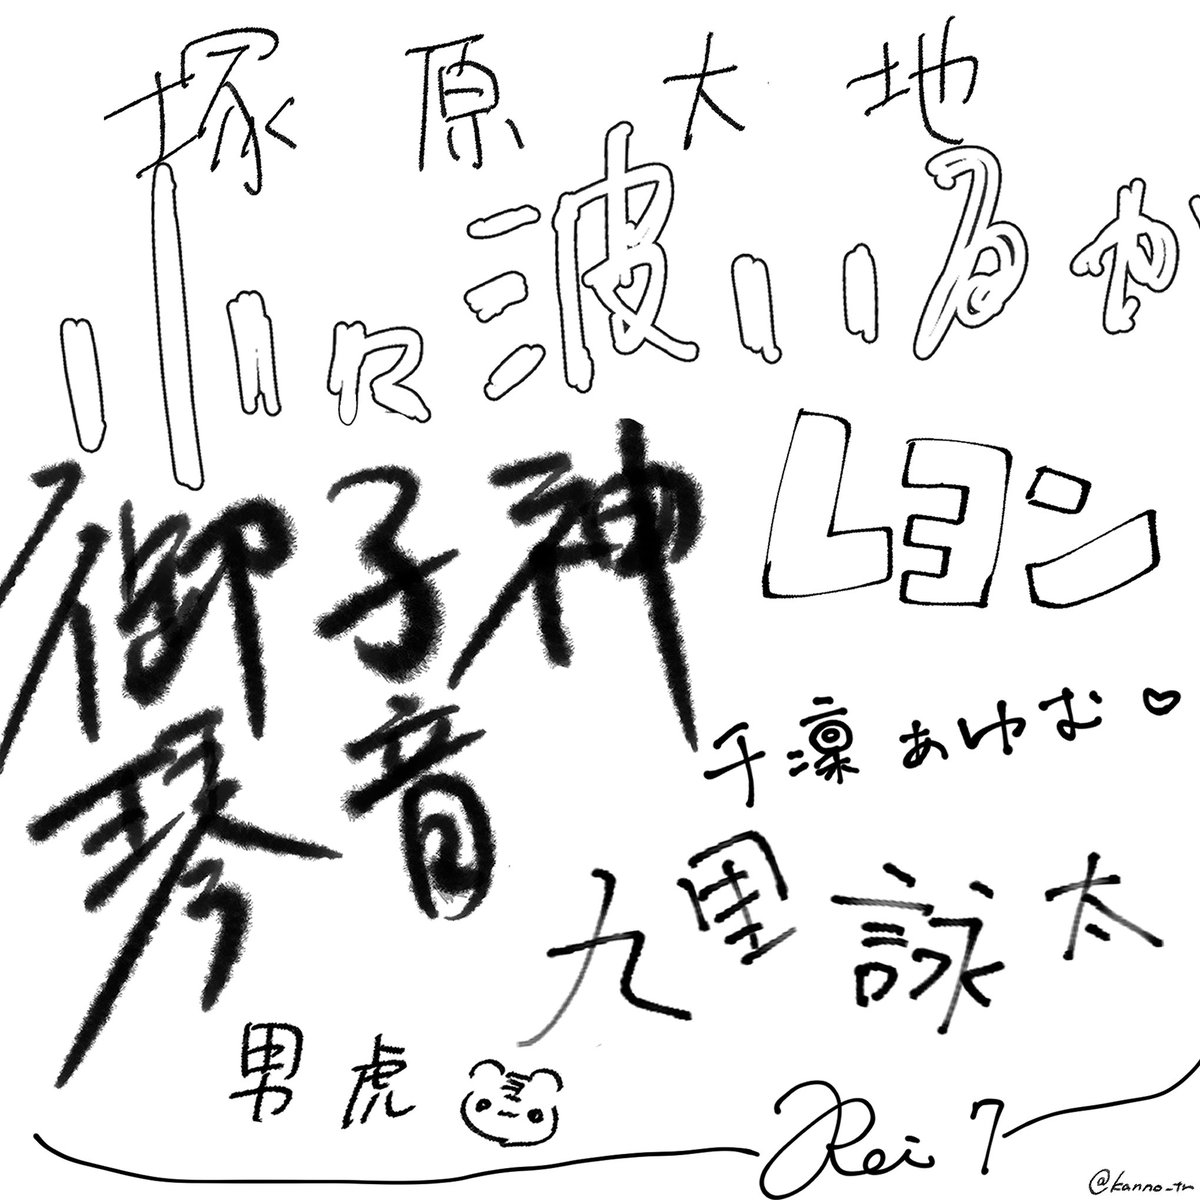 塚原大地
小々波いるか
御子神
琴音
レヨン
千凛あゆむ♡
九里詠太
男虎
Rei 7
@kanno_tn